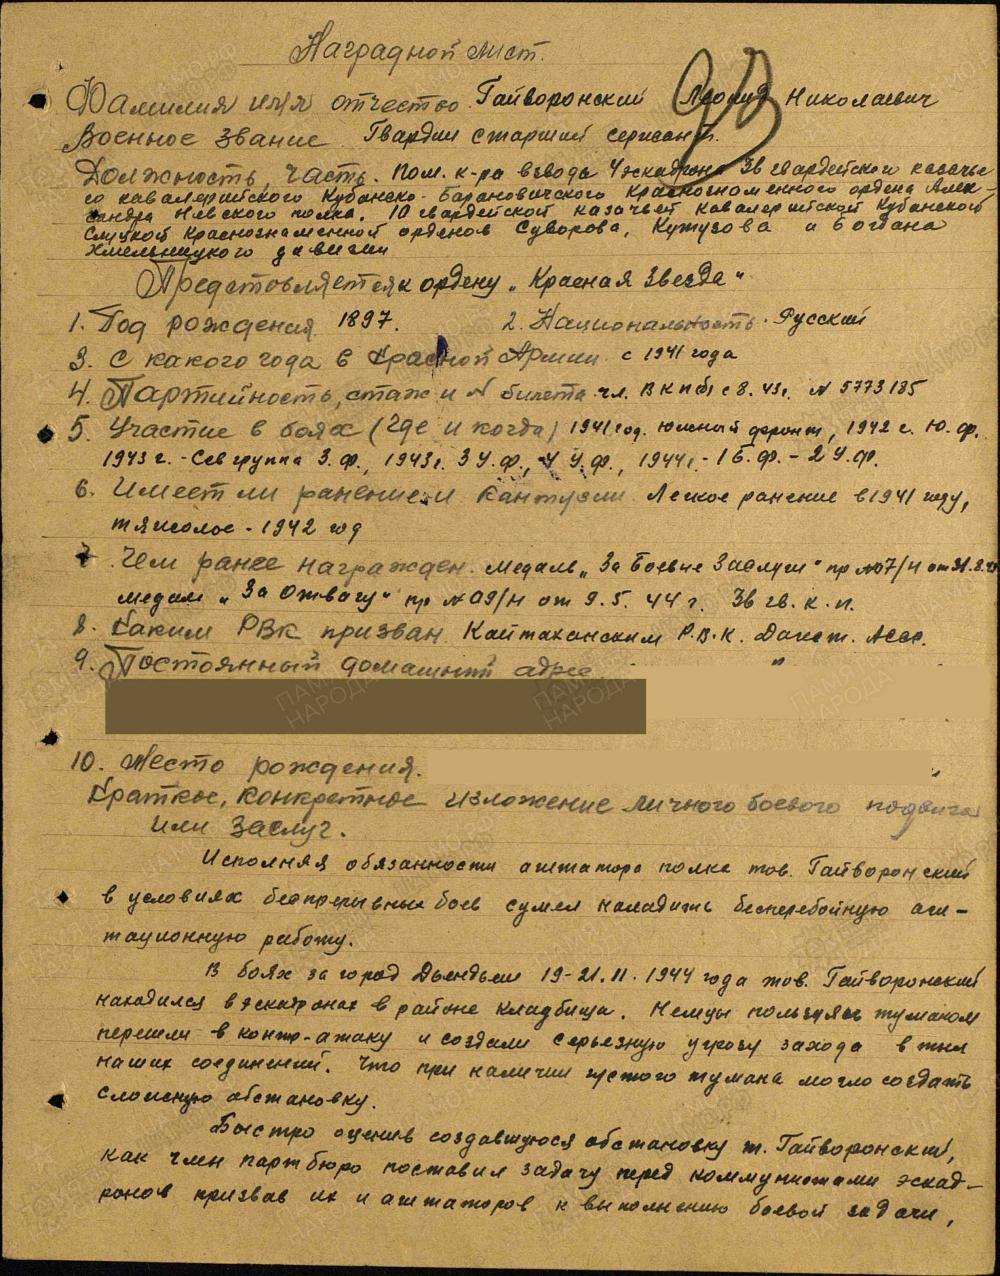 Наградной лист.
Фамилия имя отчество Гайворонский Леонид Николаевич
Военное звание Гвардии старший сержант.
Должность, часть. Пом. к-ра взвода 4 эскадрона 36 гвардейского казачье-
го кавалерийского Кубанско-Барановичского Краснознаменного ордена Алек-
сандра Невского полка. 10 гвардейской казачьей кавалерийской Кубанской
Слуцкой Краснознаменной орденов Суворова, Кутузова и Богдана
Хмельницкого дивизии
Представляется к ордену „Красная Звезда“
1. Год рождения 1897. 2. Национальность. Русский
3. С какого года в Красной Армии с 1941 года
4. Партийность, стаж и N билета чл. ВКП(б) с 8.43г. N 5773185
5. Участие в боях (где и когда) 1941 год. Южный фронт, 1942 г. Ю. ф.
1943 г. - Сев группа З. ф., 1943г. 3 У. ф., 4 У. ф., 1944г. - 1 Б. ф. - 2 У. ф.
6. Имеет ли ранения и кантузии. Легкое ранение в 1941 году,
тяжолое - 1942 год
7. Чем ранее награжден. Медаль „За Боевые Заслуги“ пр N07/н от
медаль „За Отвагу“ пр N 09/н от 9.5.44 г. 36 гв. к. п.
8. Каким РВК призван Кайтаханским Р.В.К. Дагест. Асср.
9. Постоянный домашний адрес "
10. Место рождения.
Краткое, конкретное изложение личного боевого подвига
или заслуг.
Исполняя обязанности агитатора полка тов. Гайворонский
в условиях беспрерывных боев сумел наладить бесперебойную аги-
тационную работу.
В боях за город Дьендьеш 19-21.11.1944 года тов. Гайворонский
находился в эскадронах в районе кладбища. Немцы пользуясь туманом
перешли в контр-атаку и создали серьезную угрозу захода в тыл
наших соединений. Что при наличии густого тумана могло создать
сложную обстановку.
Быстро оценив создавшуюся обстановку т. Гайворонский,
как член партбюро поставил задачу перед коммунистами эскад-
ронов призвав их и агитаторов к выполнению боевой задачи,